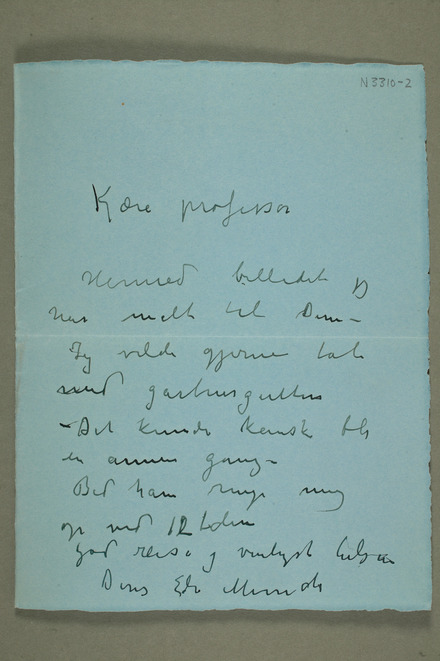 N 3310-2
Kjære professor
Hermed billedet jeg
har malt til Dem –
Jeg vilde gjerne tale
med gartnergutten
– Det kunde kanske bli
en annen gang –
Bed ham ringe mig
op ved 12 tiden
god reise og venligst hilsen
Deres Edv Munch